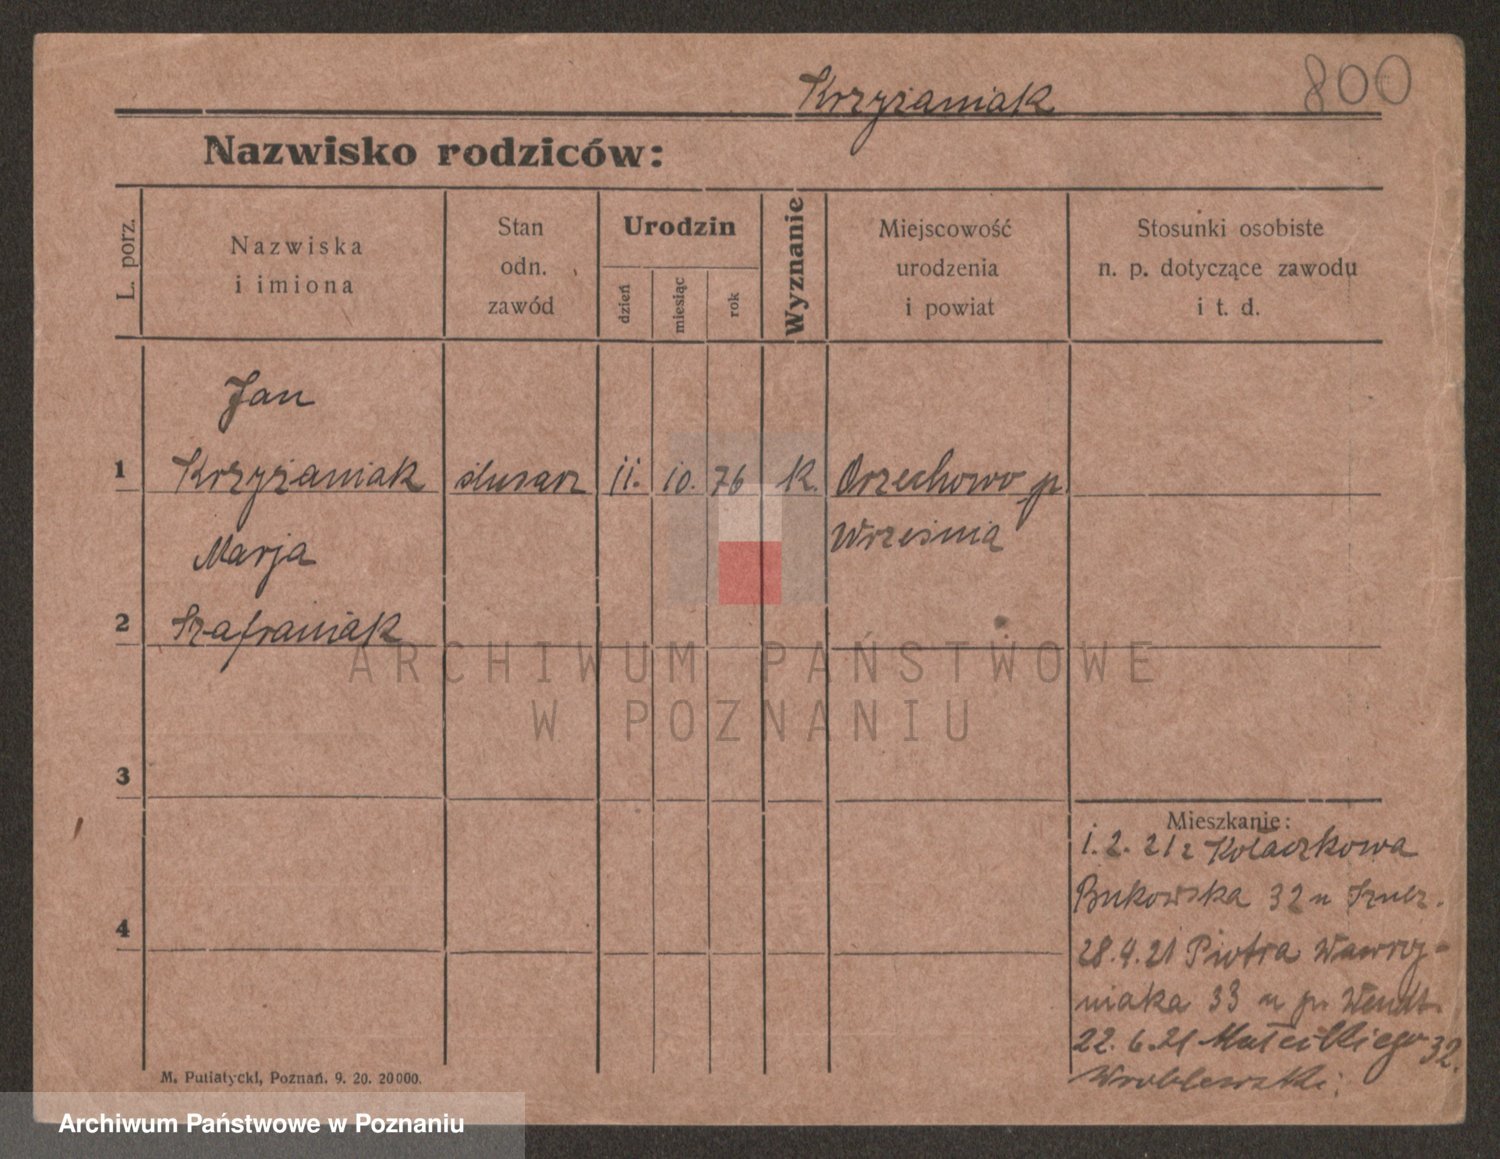 Krzyżaniak
800
Nazwisko rodziców:
L. porz.
Nazwiska
i imiona
Stan
odn.
zawód
Urodzin
dzień
miesiąc
rok
Wyznanie
Miejscowość
urodzenia
i powiat
Stosunki osobiste
n. p. dotyczące zawodu
i t. d.
Jan
1 Krzyżaniak ślusarz 11. 10. 76 k. Orzechowo p.
Września
Marja
2 Szafraniak
ARCHIWUM PAŃSTWOWE
W POZNANIU
3
Mieszkanie:
1. 2. 21 z Kołaczkowa
Bukowska 32 u
4
28.4.21 Piotra Wawrzy-
niaka 33 u p. Wendt.
22. 6. 21 Małeckiego 32.
Wroblewski
M. Putiatycki, Poznań. 9. 20. 20000.
Archiwum Państwowe w Poznaniu